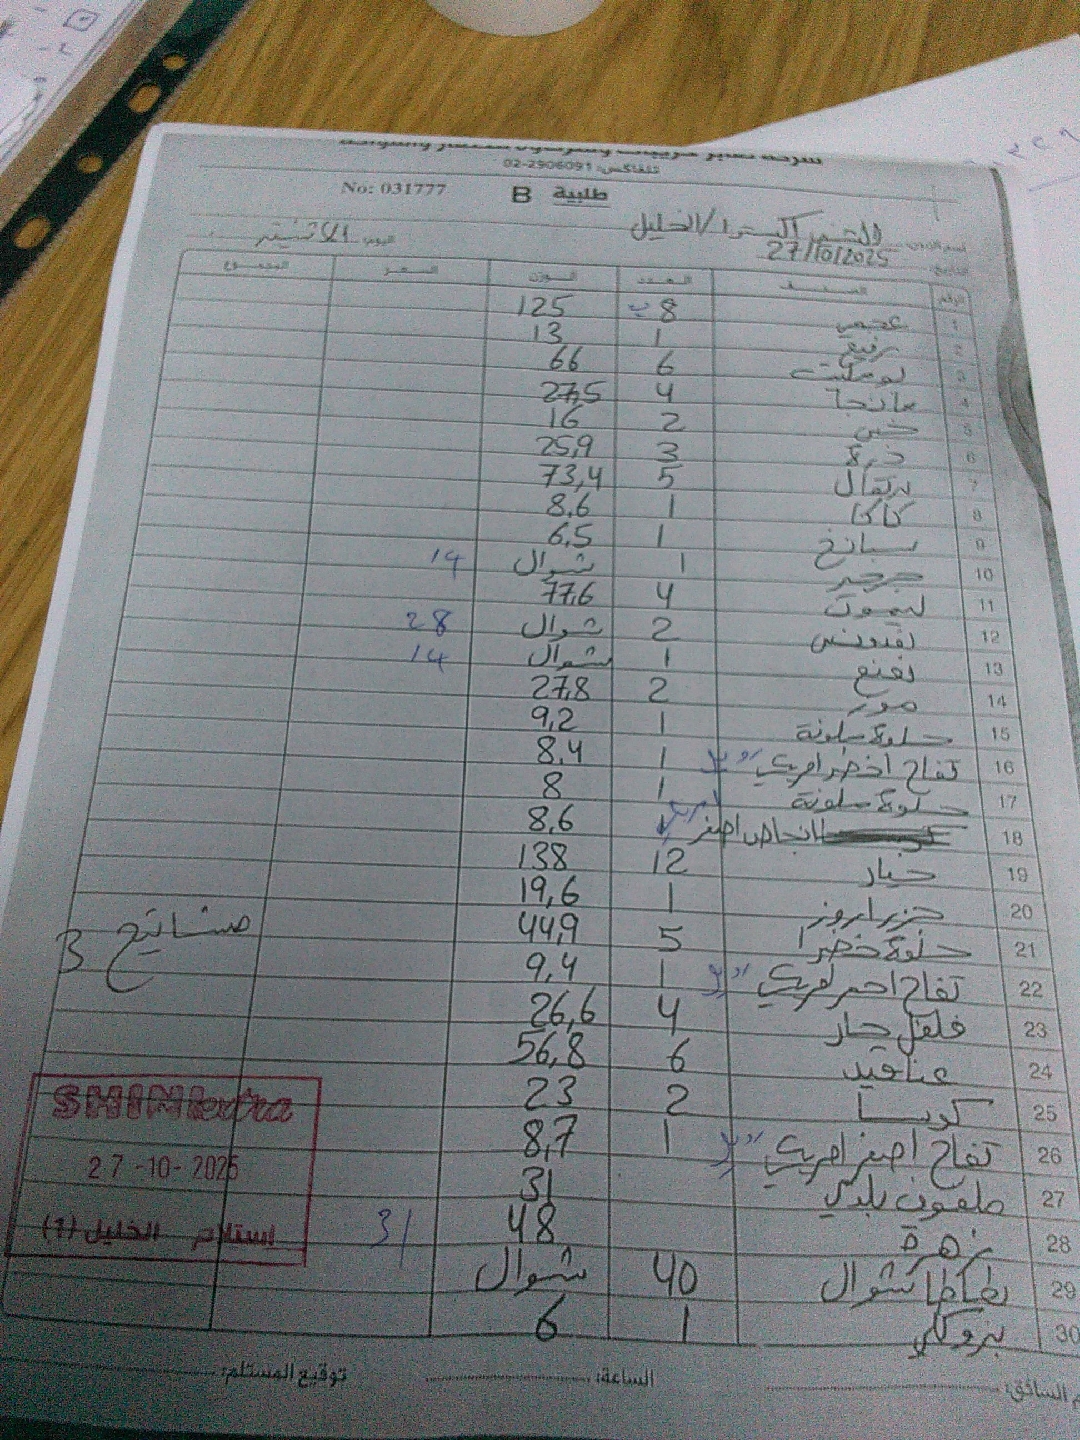 تلفاكس: 02-2906091
No: 031777
طلبية B
الشني اكسترا/الخليل
اليوم: الاثنين
التاريخ: 27/10/2025
الرقم الصنف العدد الوزن السعر المجموع
1 عجمي 8 125
2 رفيع 1 13
3 بوملت 6 66
4 مانجا 4 27,5
5 خس 2 16
6 ذرة 3 25,9
7 برتقال 5 73,4
8 كاكا 1 8,6
9 سبانخ 1 6,5
10 جرجير 1 شوال 14
11 ليمون 4 77,6
12 بقدونس 2 شوال 28
13 نعنع 1 شوال 14
14 موز 2 27,8
15 حلوة ملونة 1 9,2
16 تفاح اخضر امريكي 1 8,4
17 حلوة ملونة 1 8
18 انجاص اصفر 1 8,6
19 خيار 12 138
20 جزر ابروز 1 19,6
21 حلوة خضرا 5 44,9
22 تفاح احمر امريكي 1 9,4
23 فلفل حار 4 26,6
24 عناقيد 6 56,8
25 كوسا 2 23
26 تفاح اصفر امريكي 1 8,7
27 ملفوف بلدي 31
28 زهرة 48 31
29 بطاطا شوال 40 شوال
30 بروكلي 1 6
مشاتيح 3
SHINI extra
27-10-2025
إستلام الخليل (1)
الساعة:
توقيع المستلم: